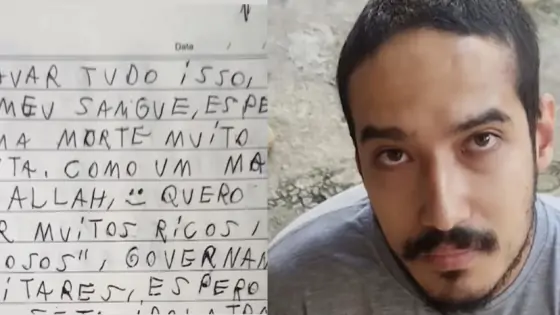 Date / /
AVAR TUDO ISSO,
MEU SANGUE, ESPE
MA MORTE MUITO
TA. COMO UM MA
ALLAH, QUERO
R MUITOS RICOS,
OSOS", GOVERNAN
ITARES, ESPERO